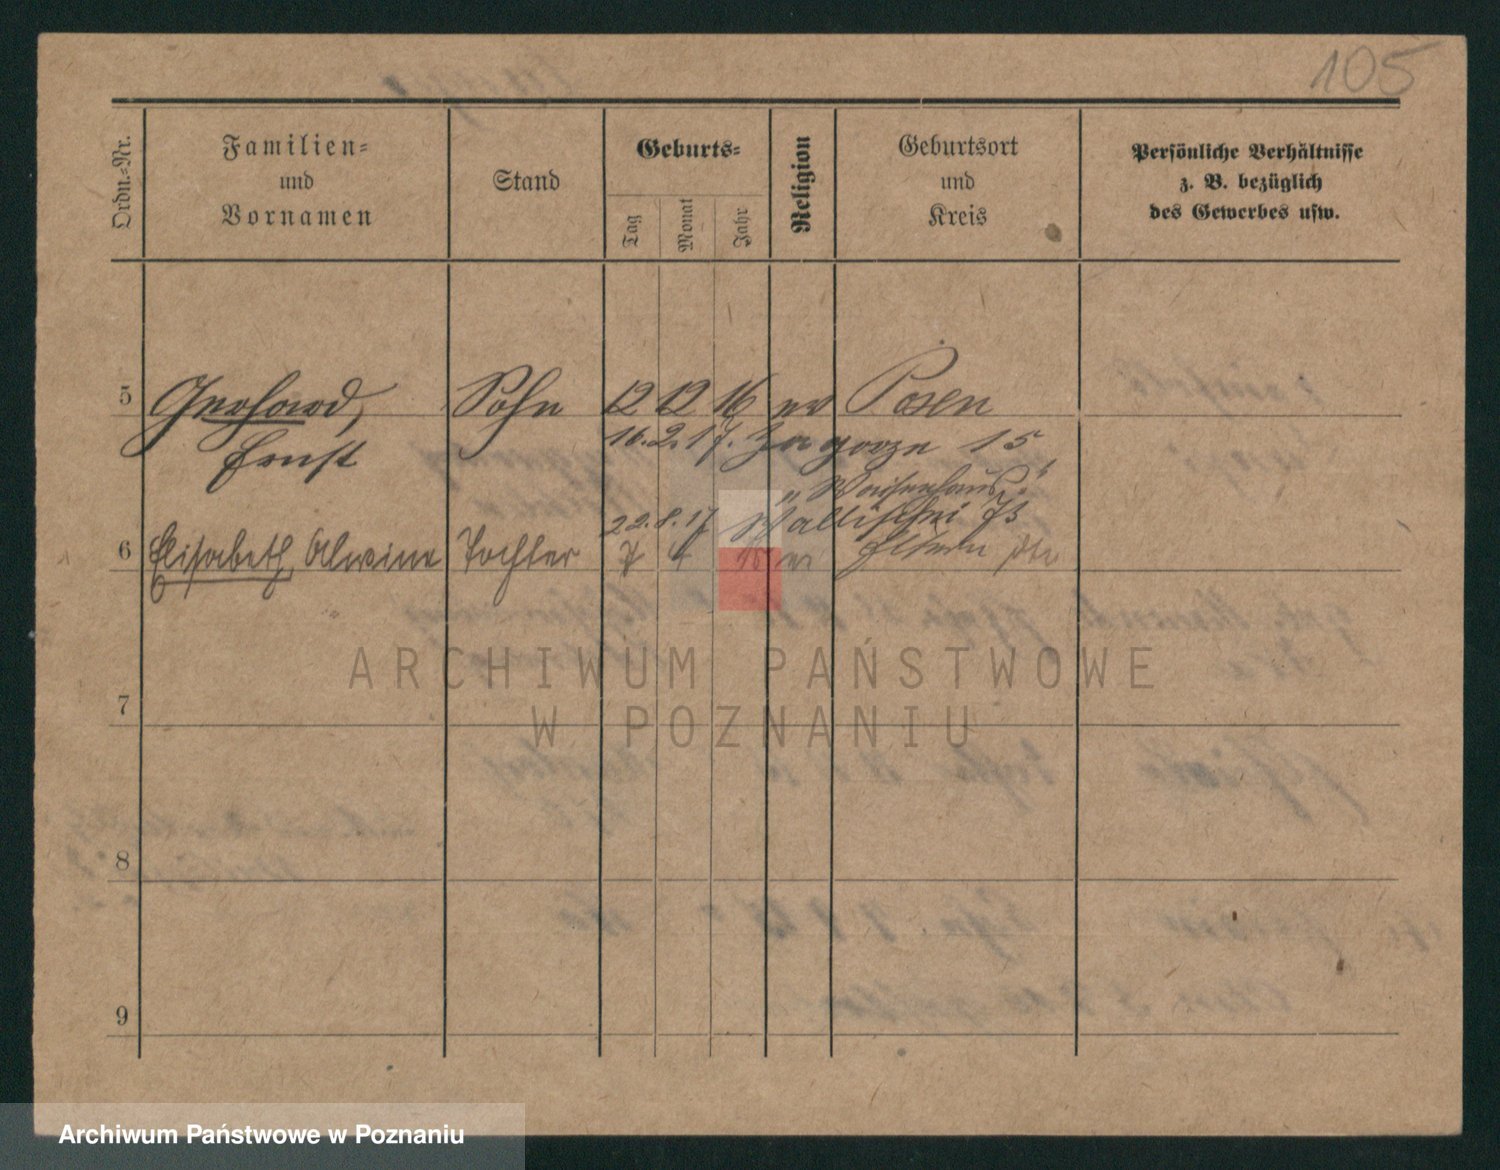 105
Ordn.-Nr.
Familien-
und
Vornamen
Stand
Geburts-
Tag
Monat
Jahr
Religion
Geburtsort
und
Kreis
Persönliche Verhältnisse
z. B. bezüglich
des Gewerbes usw.
5 Gerhard, Sohn 12 12 16 ev Posen
Ernst 16.2.17. Zagorze 15
"Waisenhaus"
22.8.17 Wallischei 73
6 Elisabeth, Alwine Tochter 7 4 18 ev Eltern
7
8
9
ARCHIWUM PAŃSTWOWE
W POZNANIU
Archiwum Państwowe w Poznaniu